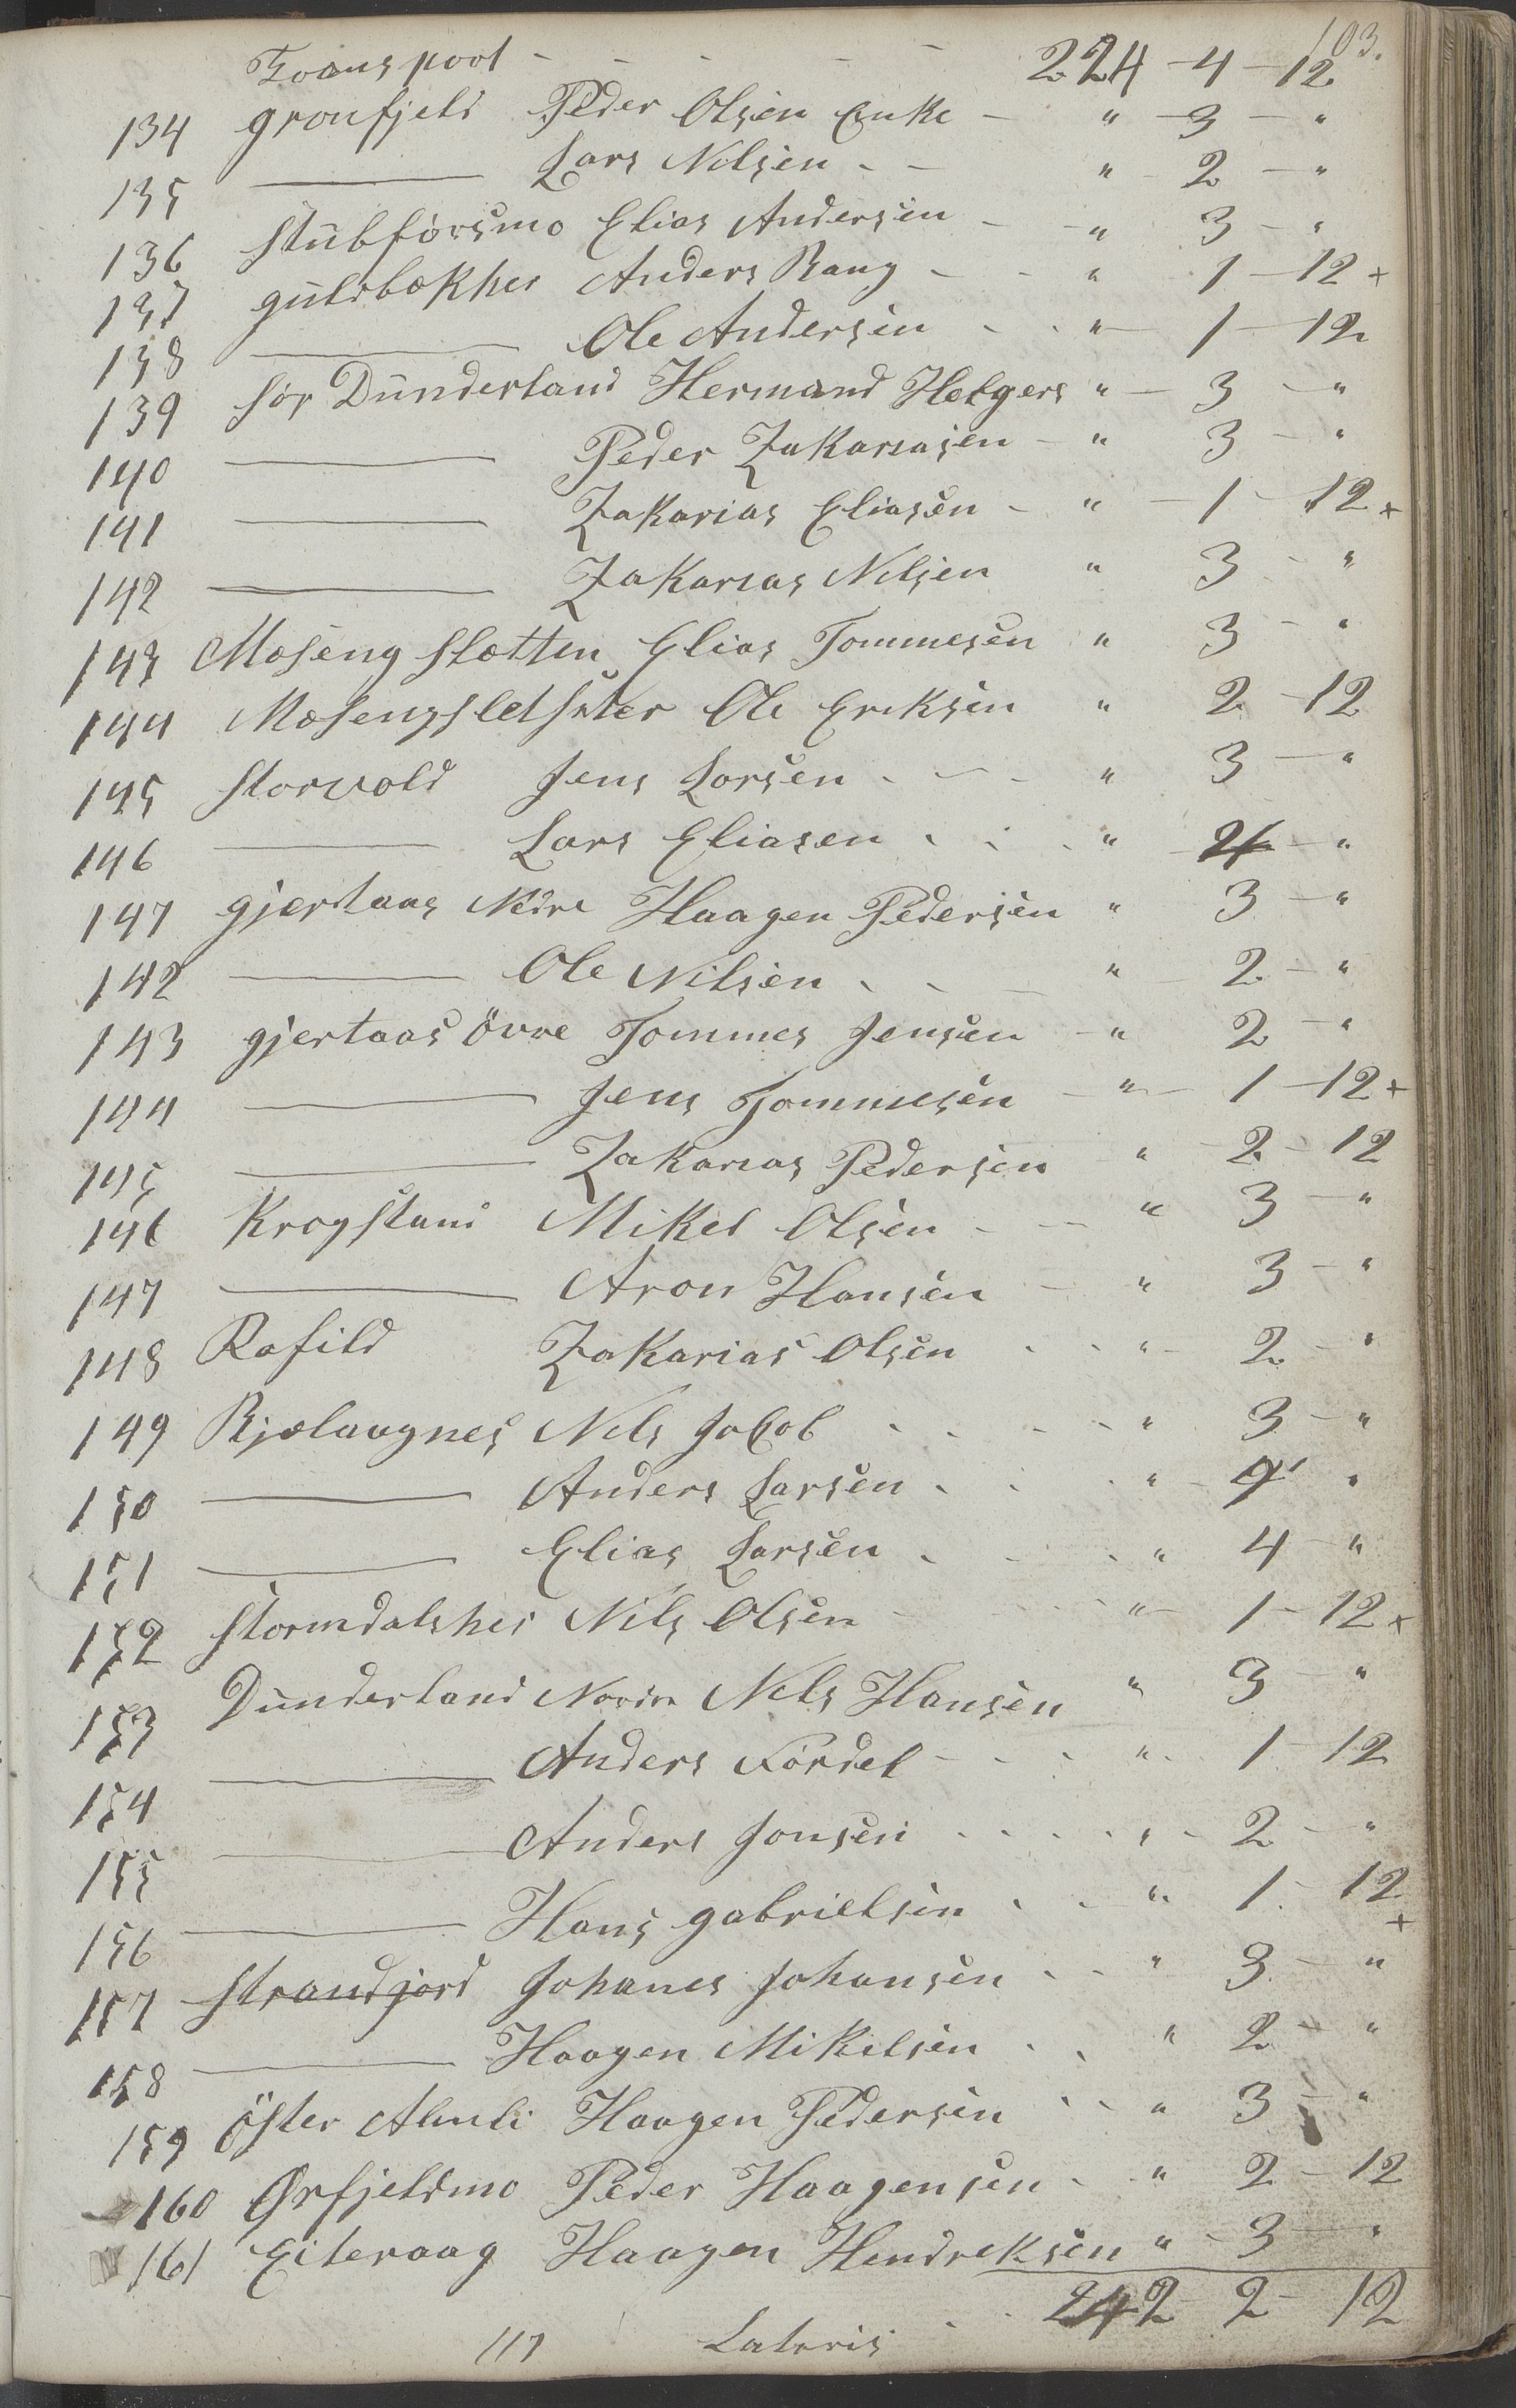 103.
Transport - - - - - 224 - 4 - 12
134 gronfjeld Peder Olsen Enke - " - 3 - "
135 ——— Lars Nilsen - - " - 2 - "
136 Stubforsmo Elias Andersen - - " 3 - "
137 guldbækhei Anders Rang - - " 1 - 12 +
138 ——— Ole Andersen - - " - 1 - 12
139 Sør Dunderland Hermand Helgers " - 3 - "
140 ——— Peder Zakariasen - " 3 - "
141 ——— Zakarias Eliasen - " - 1 - 12 +
142 ——— Zakarias Nilsen " 3 - "
143 Moseng Slætten Elias Tommesen " 3 - "
144 Mosengsletseter Ole Eriksen " 2 - 12
145 Storvold Jens Larsen - - - " 3 - "
146 ——— Lars Eliasen - - - " - 4 - "
147 gjertaas Nedre Haagen Pedersen " 3 - "
142 ——— Ole Nilsen - - - " 2 - "
143 gjertaas övre Tommes Jensen - " 2 - "
144 ——— Jens Tommesen - " - 1 - 12 +
145 ——— Zakarias Pedersen - " - 2 - 12
146 Krogstand Mikel Olsen - - " 3 - "
147 ——— Aron Hansen - " 3 - "
148 Rafild Zakarias Olsen - - " - 2 - "
149 Bjølaagnes Nils Jakob - - - - " 3 - "
150 ——— Anders Larsen - - - " - "
151 ——— Elias Larsen - - - " 4 - "
152 Stormdalshei Nils Olsen - - - " - 1 - 12 +
153 Dunderland Nordre Nils Hansen " 3 - "
154 ——— Anders Fördel - - - " - 1 - 12
155 ——— Anders Jonsen - - - - " - 2 - "
156 ——— Hans gabrielsen - - " - 1 - 12 +
157 Strandjord Johanes Johansen - - " 3 - "
158 ——— Haagen Mikelsen - - " 2 - "
159 öster Almli Haagen Pedersen - - " 3 - "
160 Ørfjeldmo Peder Haagensen - - " 2 - 12
161 Eiteraag Haagen Hendreksen " - 3 - "
117 Lateris - - 242 2 - 12